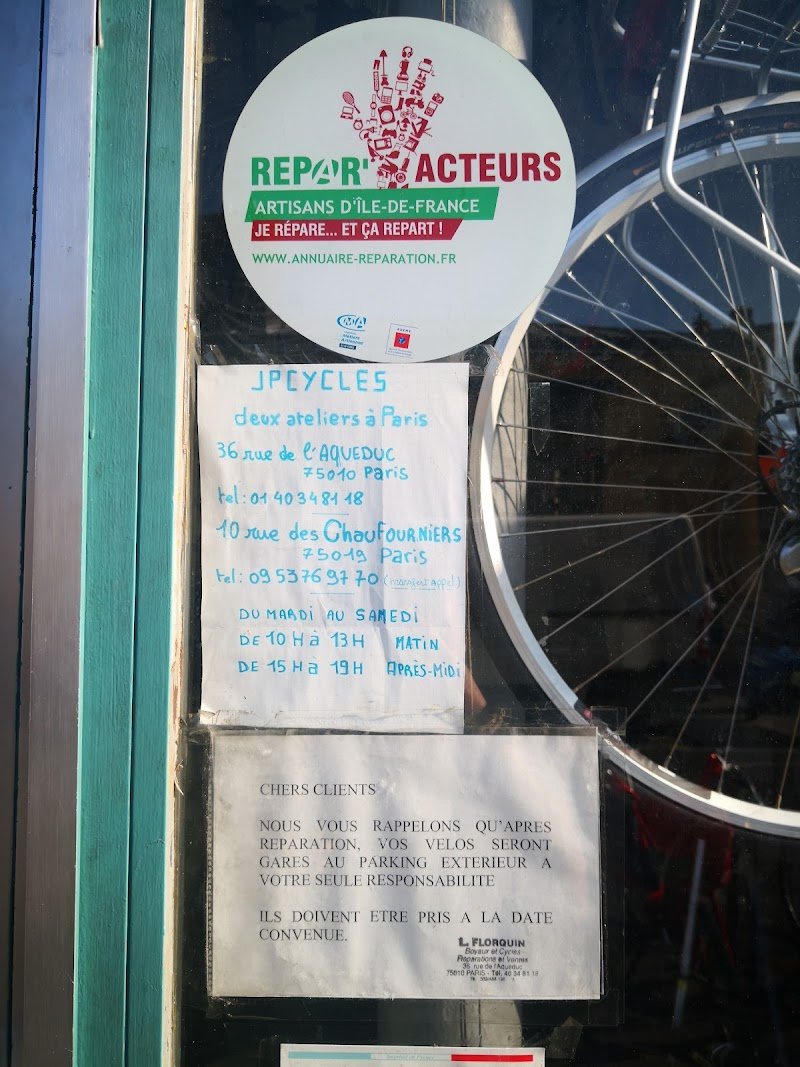 REPAR'ACTEURS
ARTISANS D'ÎLE-DE-FRANCE
JE RÉPARE... ET ÇA REPART !
WWW.ANNUAIRE-REPARATION.FR
CMA
JPCYCLES
deux ateliers à Paris
36 rue de l'AQUEDUC
75010 Paris
tel: 01 40 34 81 18
10 rue des ChauFOURNIERS
75019 Paris
tel: 09 53 76 97 70 (transfert appel)
DU MARDI AU SAMEDI
DE 10 H à 13H MATIN
DE 15H à 19H APRÈS-MIDI
CHERS CLIENTS
NOUS VOUS RAPPELONS QU'APRES
REPARATION, VOS VELOS SERONT
GARES AU PARKING EXTERIEUR A
VOTRE SEULE RESPONSABILITE
ILS DOIVENT ETRE PRIS A LA DATE
CONVENUE.
L. FLORQUIN
Boyaux et Cycles
Réparations et Ventes
36 rue de l'Aqueduc
75010 PARIS - Tél. 40 34 81 18